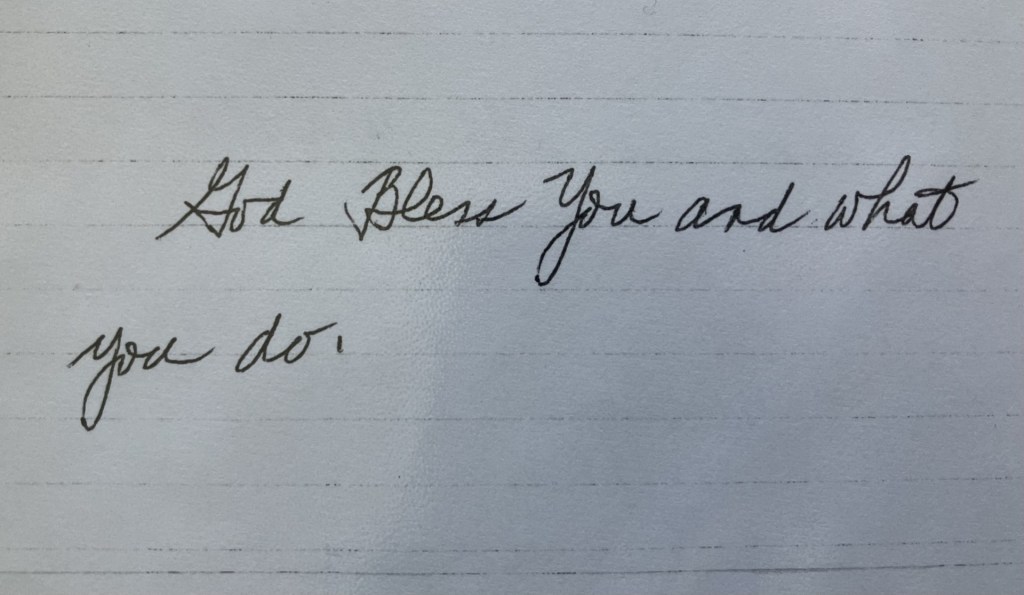 God Bless You and what
you do.